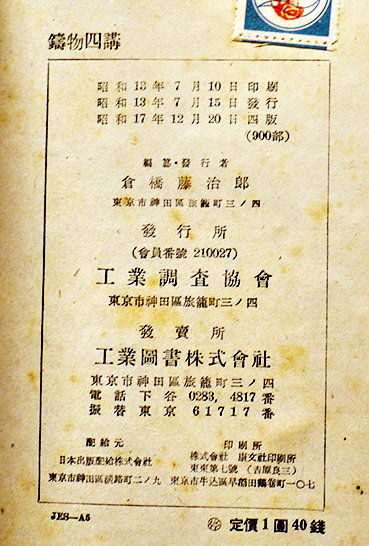 鑄物四講
昭和13年7月10日印刷
昭和13年7月15日發行
昭和17年12月20日四版
(900部)
編纂・發行者
倉橋藤治郎
東京市神田區旅籠町三ノ四
發行所
(會員番號 210027)
工業調査協會
東京市神田區旅籠町三ノ四
發賣所
工業圖書株式會社
東京市神田區旅籠町三ノ四
電話下谷 0283, 4817番
振替東京 61717番
配給元
日本出版配給株式會社
東京市神田區淡路町二ノ九
印刷所
株式會社 康文社印刷所
東東第七號 (吉原良三)
東京市牛込區早稻田鶴卷町一〇七
JES—A5
定價1圓40錢